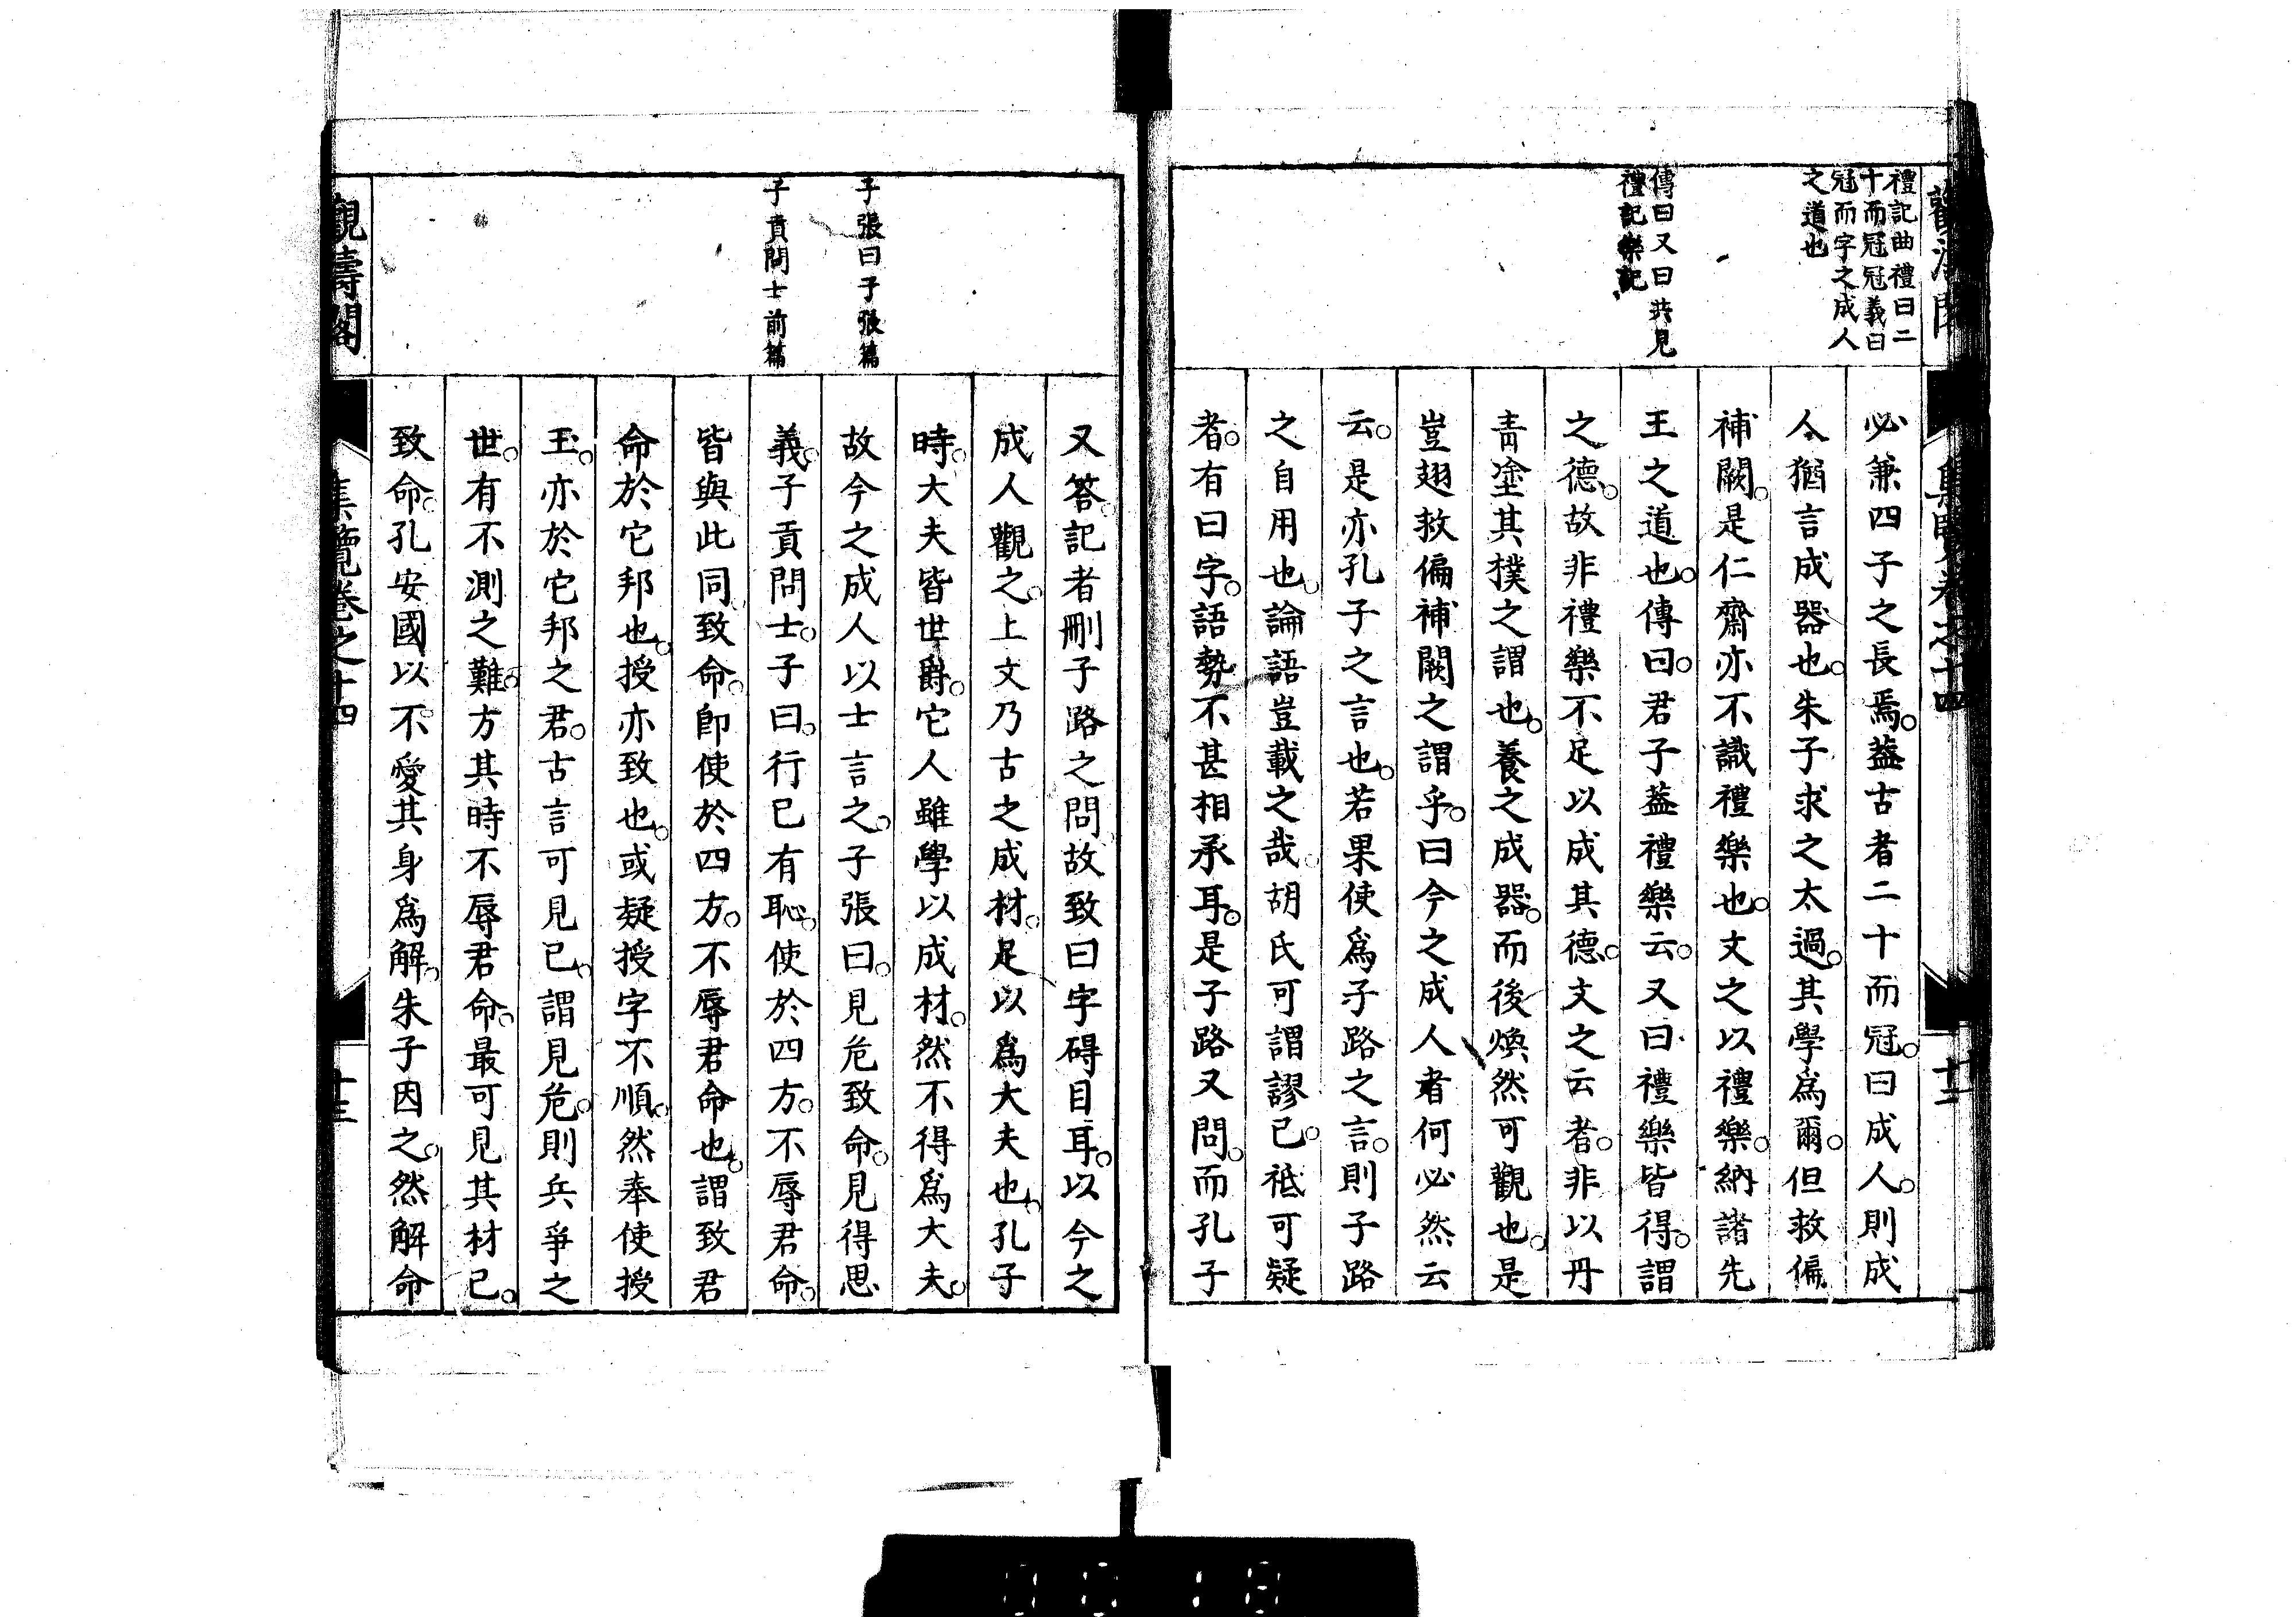 禮記曲禮曰二
十而冠冠義曰
冠而字之成人
之道也
傳曰又曰共見
禮記樂記
必兼四子之長焉。蓋古者二十而冠。曰成人。則成
人猶言成器也。朱子求之太過。其學爲爾。但救偏
補闕。是仁齋亦不識禮樂也。文之以禮樂。納諸先
王之道也。傳曰。君子蓋禮樂云。又曰禮樂皆得。謂
之德。故非禮樂不足以成其德。文之云者。非以丹
青塗其樸之謂也。養之成器。而後煥然可觀也。是
豈翅救偏補闕之謂乎。曰今之成人者何必然云
云。是亦孔子之言也。若果使爲子路之言。則子路
之自用也。論語豈載之哉。胡氏可謂謬已。祗可疑
者。有曰字。語勢不甚相承耳。是子路又問。而孔子
子張曰子張篇
子貢問士前篇
又答。記者刪子路之問故致曰字碍目耳。以今之
成人觀之。上文乃古之成材。足以爲大夫也。孔子
時。大夫皆世爵。它人雖學以成材。然不得爲大夫。
故今之成人以士言之。子張曰。見危致命。見得思
義。子貢問士。子曰。行己有恥。使於四方。不辱君命。
皆與此同。致命。卽使於四方。不辱君命也。謂致君
命於它邦也。授亦致也。或疑授字不順。然奉使授
玉。亦於它邦之君。古言可見已。謂見危。則兵爭之
世。有不測之難。方其時不辱君命。最可見其材已。
致命。孔安國以不愛其身爲解。朱子因之。然解命
觀濤閣
集覽卷之十四
十三